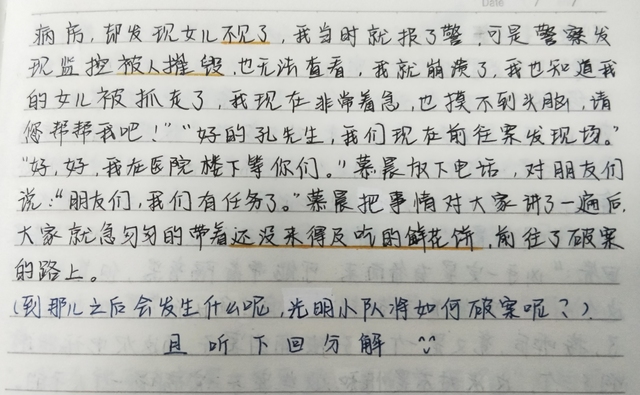 病房，却发现女儿不见了，我当时就报了警，可是警察发
现监控被人摧毁，也无法查看，我就崩溃了，我也知道我
的女儿被抓走了，我现在非常着急，也摸不到头脑，请
您帮帮我吧！”“好的孔先生，我们现在前往案发现场。”
“好，好，我在医院楼下等你们。”慕晨放下电话，对朋友们
说：“朋友们，我们有任务了。”慕晨把事情对大家讲了一遍后，
大家就急匆匆的带着还没来得及吃的鲜花饼，前往了破案
的路上。
（到那儿之后会发生什么呢，光明小队将如何破案呢？）
且听下回分解